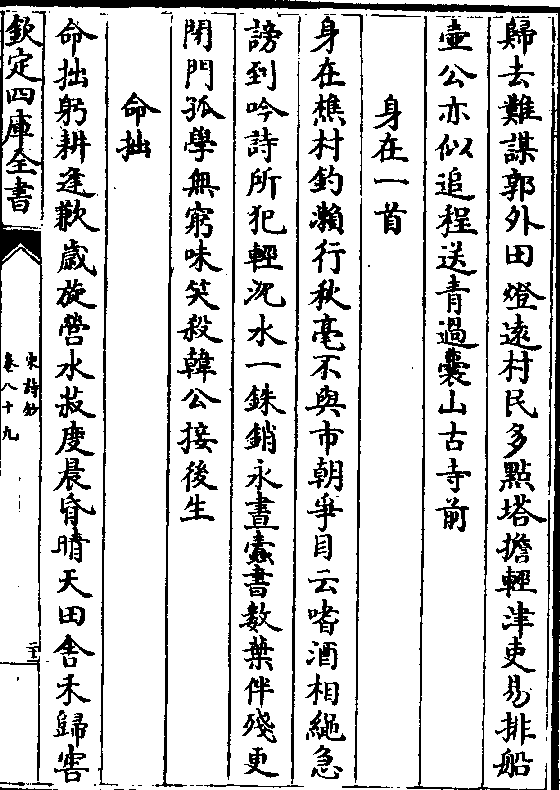 歸去難謀郭外田燈逺村民多㸃塔擔輕津吏易排船
壷公亦似追程送青過囊山古寺前
身在一首
身在樵村釣瀨行秋毫不與市朝爭目云嗜酒相繩急
謗到吟詩所犯輕沉水一銖銷永晝蠧書數葉伴殘更
閉門孤學無窮味笑殺韓公接後生
命拙
命拙躬耕逢歉歲旋營水菽度晨昏晴天田舎禾歸窖
欽定四庫全書
宋詩鈔
卷八十九
二十三